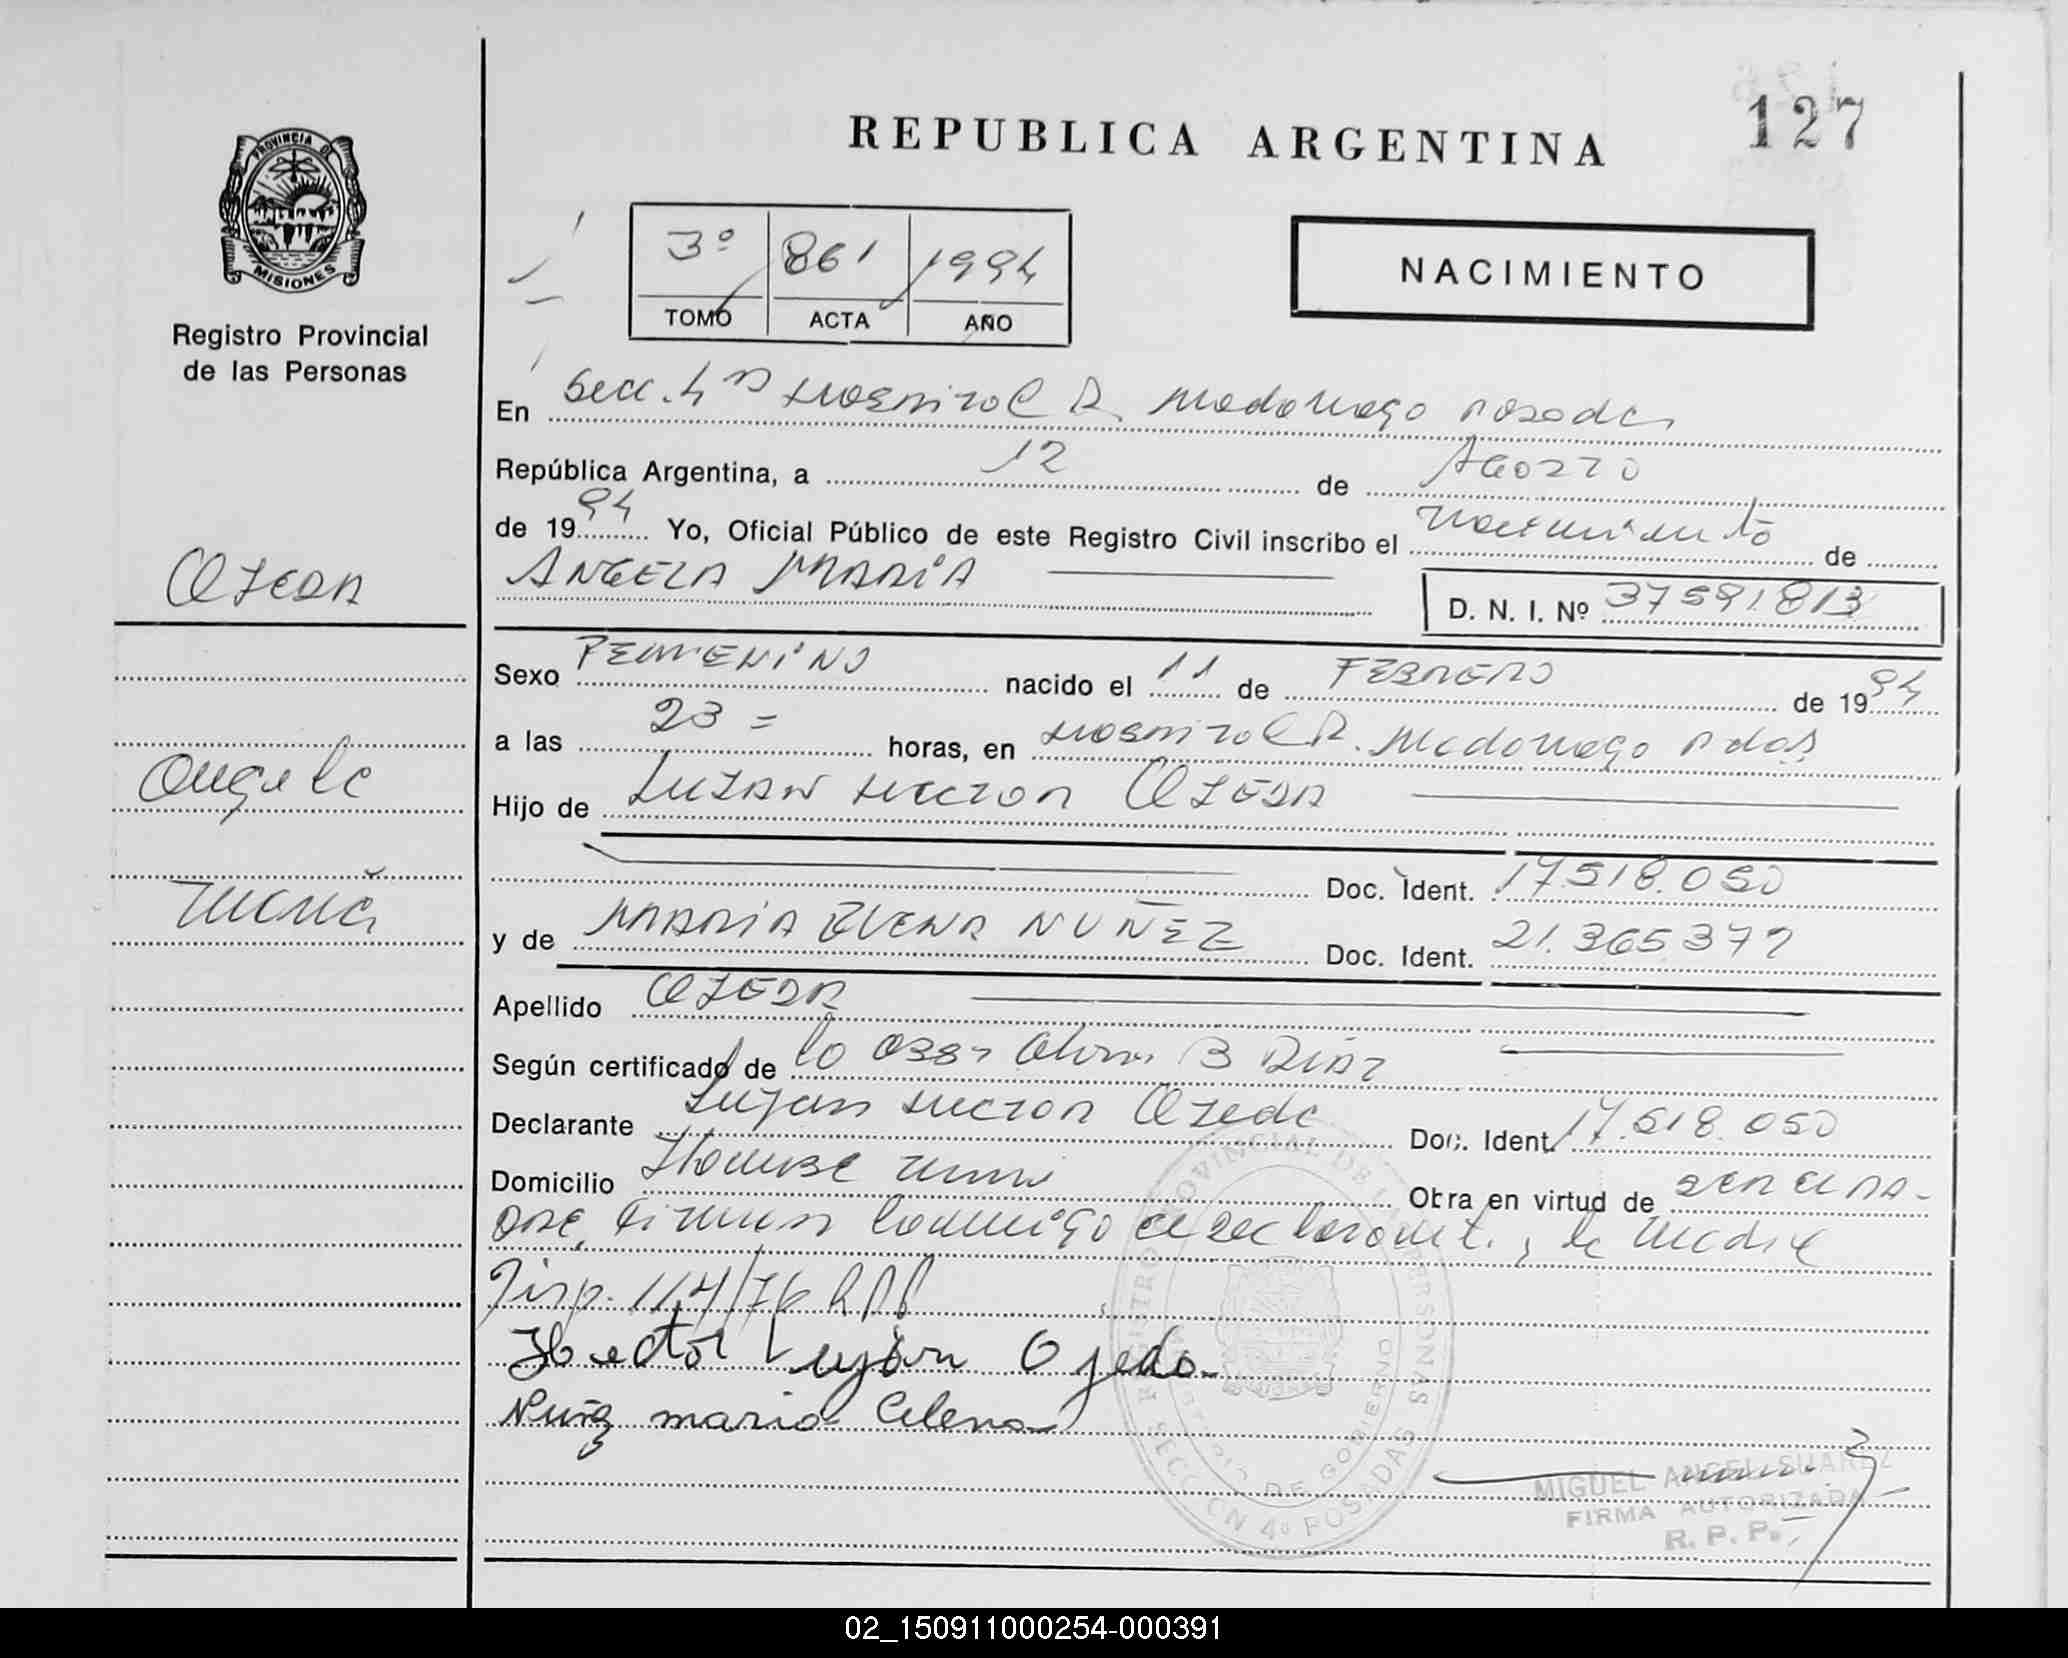 127
REPUBLICA ARGENTINA
PROVINCIA DE
MISIONES
Registro Provincial
de las Personas
3º 861 1994
TOMO ACTA AÑO
NACIMIENTO
En Secc. 4ª Hospital R. Madariaga Posadas
República Argentina, a 12 de Agosto
de 1994 Yo, Oficial Público de este Registro Civil inscribo el nacimiento de
ANGELA MARIA D. N. I. Nº 37591813
OJEDA
Angela
Maria
Sexo FEMENINO nacido el 11 de FEBRERO de 1994
a las 23 = horas, en Hospital R. Madariaga Pdas
Hijo de LUJAN HECTOR OJEDA
Doc. Ident. 17.518.050
y de MARIA ELENA NUÑEZ Doc. Ident. 21.365.377
Apellido OJEDA
Según certificado de la Obst. B Diaz
Declarante Lujan Hector Ojeda Doc. Ident. 17.518.050
Domicilio Otra en virtud de ser el pa-
dre, firman conmigo el declarante y la madre
Disp. 114/76 RPP
Hector Lujan Ojeda
Nuñez maria Elena
REGISTRO PROVINCIAL DE LAS PERSONAS
MINISTERIO DE GOBIERNO
SECCION 4ª POSADAS
MIGUEL ANGEL SUAREZ
FIRMA AUTORIZADA
R. P. P.
02_150911000254-000391